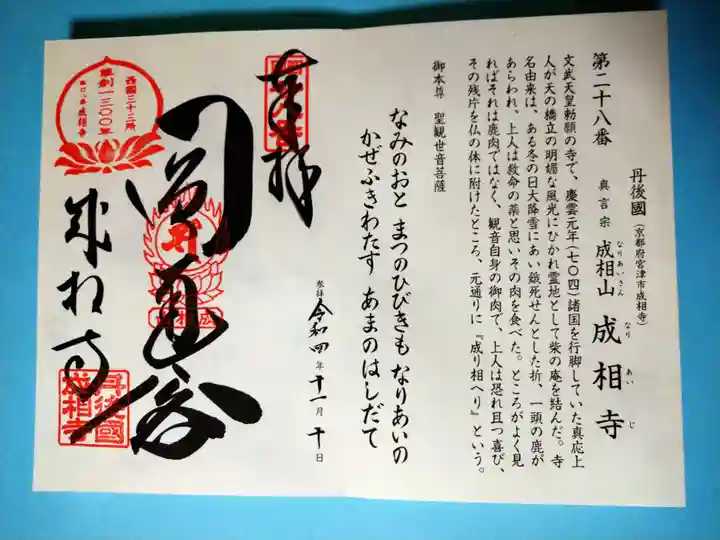 第二十八番
丹後國
(京都府宮津市成相寺)
真言宗 成相山 成相寺
なりあいさん
なり あい じ
文武天皇勅願の寺で、慶雲元年(七〇四)諸国を行脚していた真応上
人が天の橋立の明媚な風光にひかれ霊地として柴の庵を結んだ。寺
名由来は、ある冬の日大降雪にあい餓死せんとした折、一頭の鹿が
あらわれ、上人は救命の薬と思いその肉を食べた。ところがよく見
ればそれは鹿肉ではなく、観音自身の御肉で、上人は恐れ且つ喜び、
その残片を仏の体に附けたところ、元通りに『成り相へり』という。
御本尊 聖観世音菩薩
なみのおと まつのひびきも なりあいの
かぜふきわたす あまのはしだて
奉拝
参拝 令和四年十一月十日
成相寺
西國三十三所
草創一三〇〇年
丹後國
成相寺